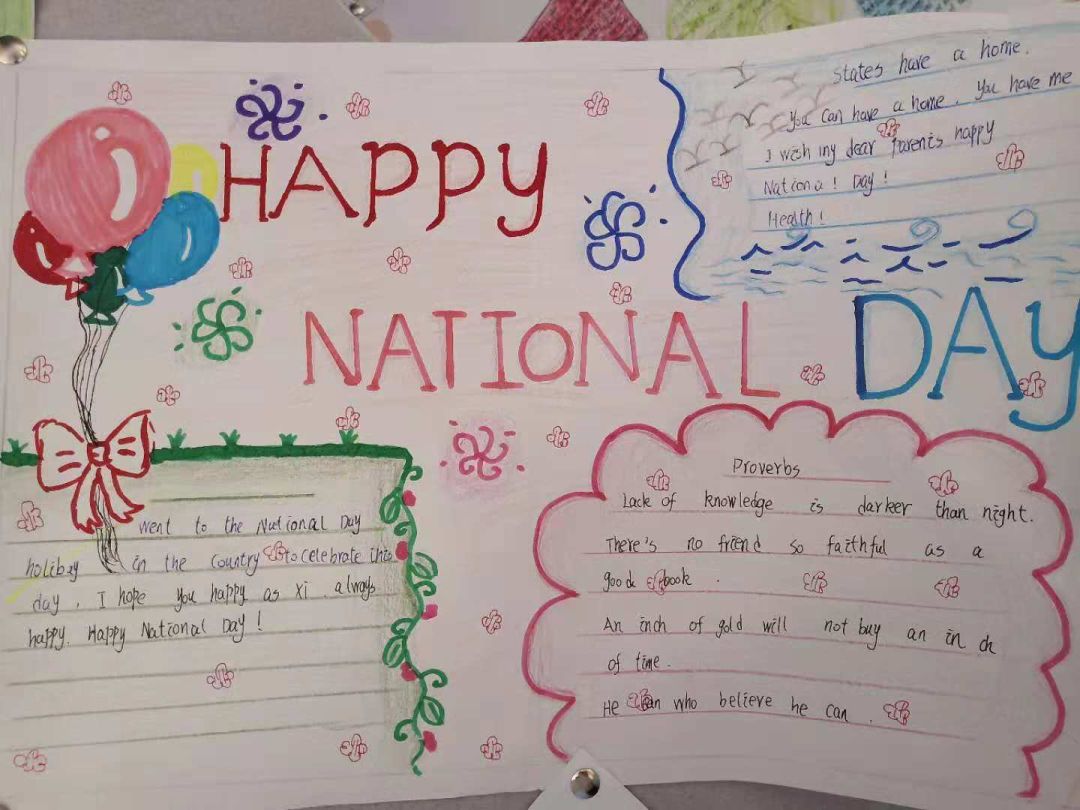 HAPPY
NATIONAL DAY
States have a home.
You can have a home. You have me
I wish my dear parents happy
National Day!
Health!
went to the National Day
holiday in the country to celebrate this
day, I hope you happy as xi. always
happy. Happy National Day!
Proverbs
Lack of knowledge is darker than night.
There's no friend so faithful as a
good book.
An inch of gold will not buy an inch
of time.
He can who believe he can.